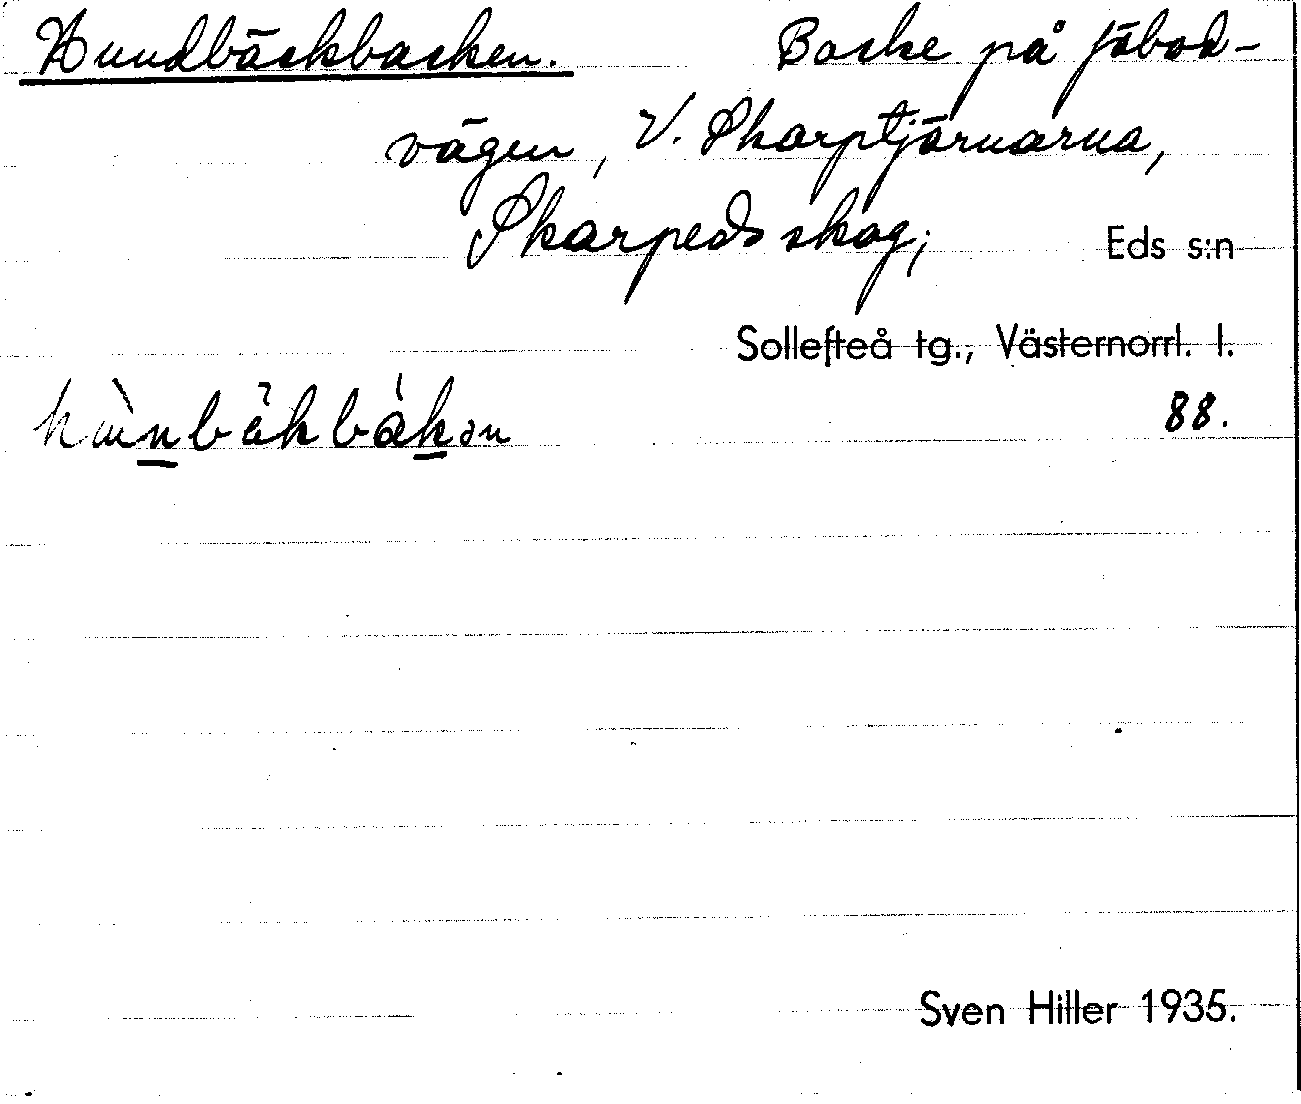 Hundbäckbacken. Backe på fäbod-
vägen, V. Skarptjärnarna,
Skarpeds skog; Eds s:n
Sollefteå tg., Västernorrl. l.
88.
Sven Hiller 1935.